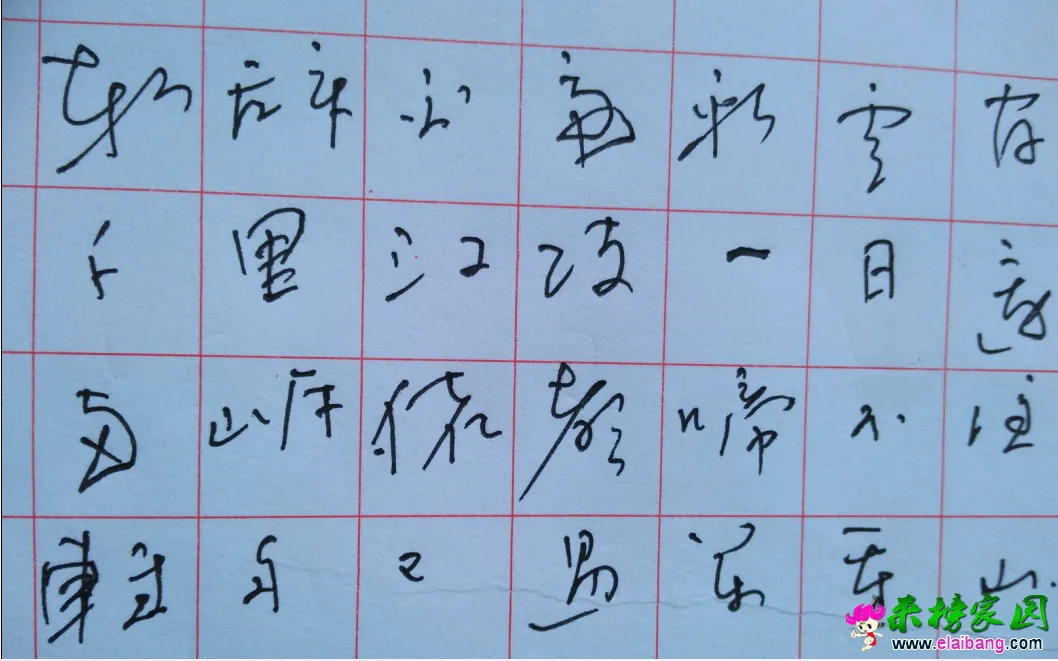 朝辞白帝彩云间
千里江陵一日还
两岸猿声啼不住
轻舟已过万重山
来榜家园
www.elaibang.com